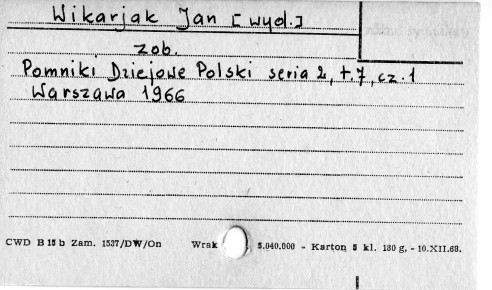 Wikarjak Jan [wyd.]
zob.
Pomniki Dziejowe Polski seria 2, t.7, cz.1
Warszawa 1966
CWD B 15 b Zam. 1537/DW/On Wrak 5.040.000 - Karton 5 kl. 180 g. - 10.XII.68.